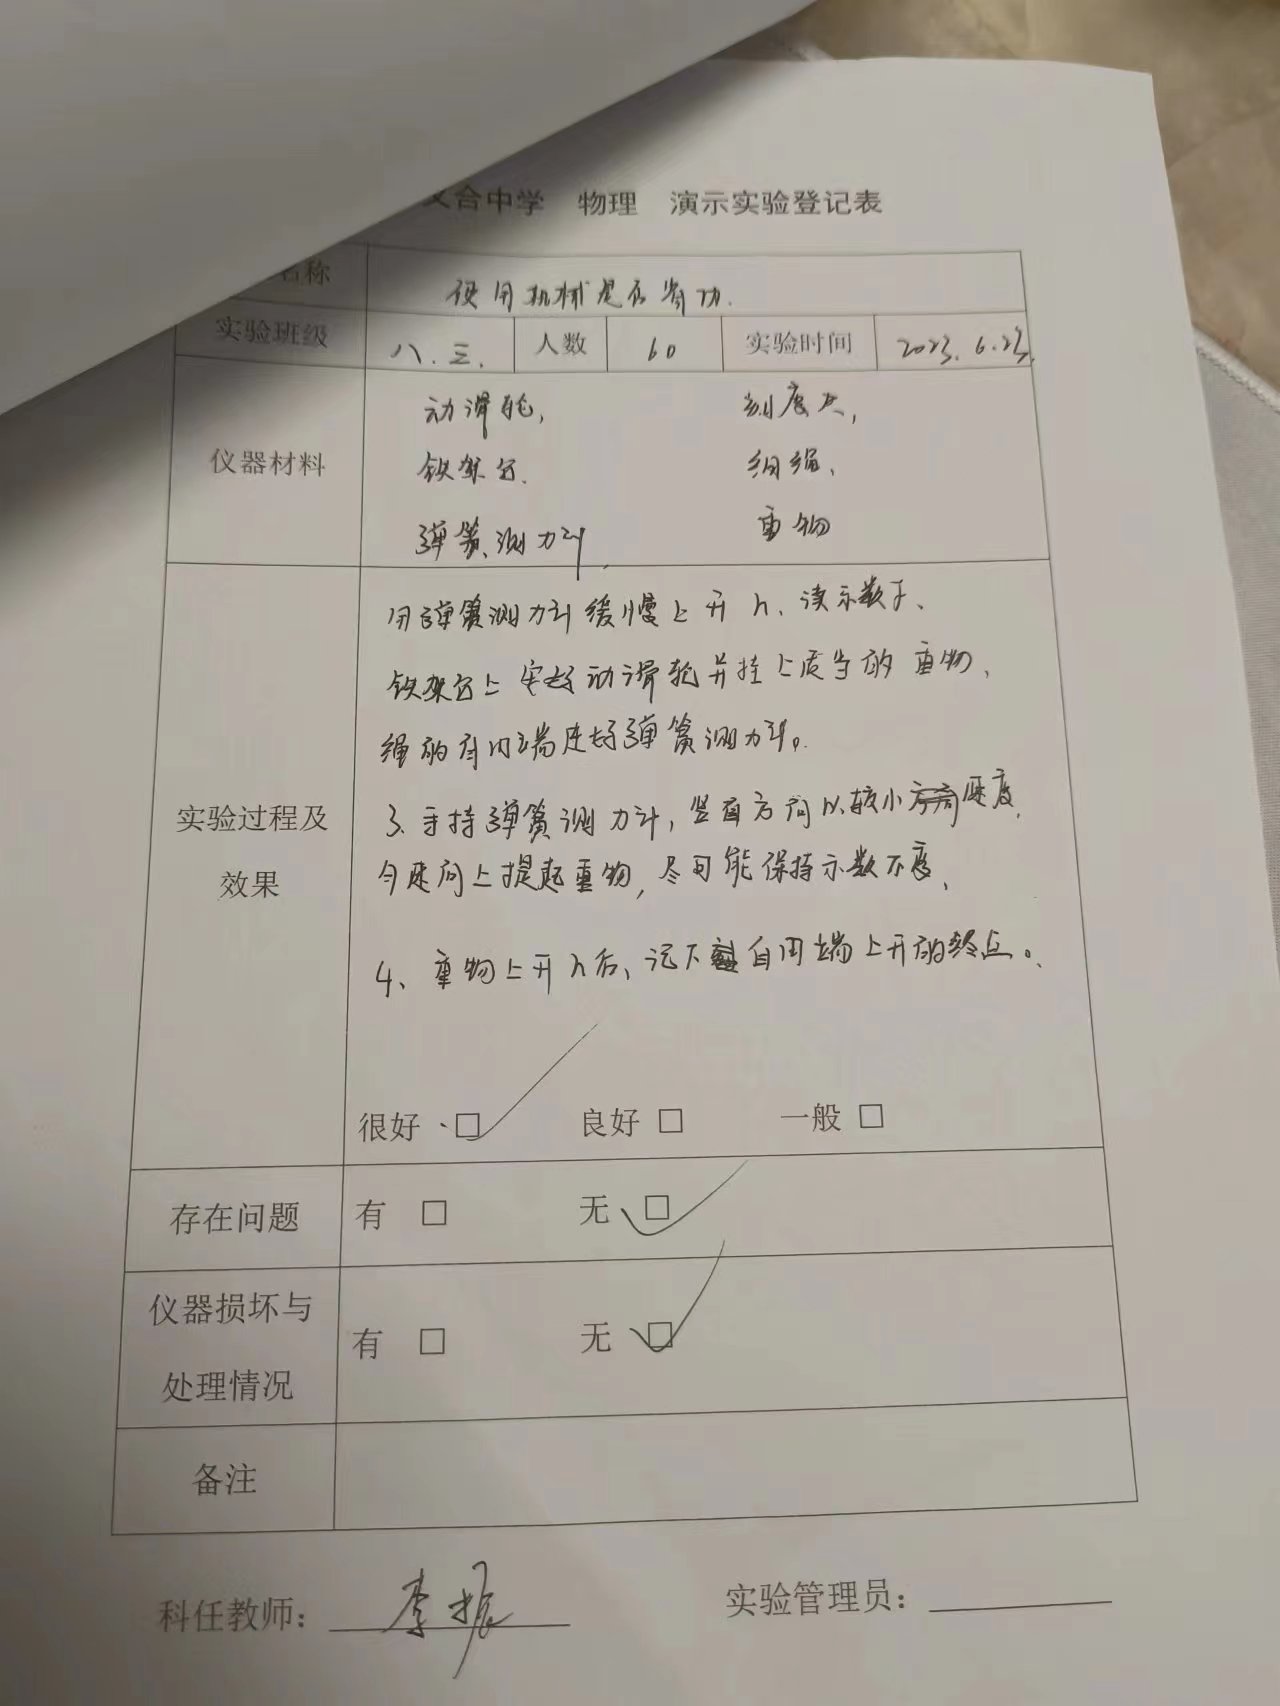 合中学 物理 演示实验登记表
名称 使用机械是否省功.
实验班级 八.三. 人数 60 实验时间 2023.6.23.
仪器材料
动滑轮, 刻度尺,
铁架台. 细绳、
弹簧测力计, 重物
实验过程及
效果
用弹簧测力计缓慢上升h、读示数F、
铁架台上安好动滑轮并挂上适当的重物、
绳的自由端连好弹簧测力计。
3、手持弹簧测力计,竖直方向以较小速度
匀速向上提起重物,尽可能保持示数不变、
4、重物上升h后、记下自由端上升的终点。
很好 □ 良好 □ 一般 □
存在问题 有 □ 无 □
仪器损坏与
处理情况
有 □ 无 □
备注
科任教师: 李振 实验管理员: